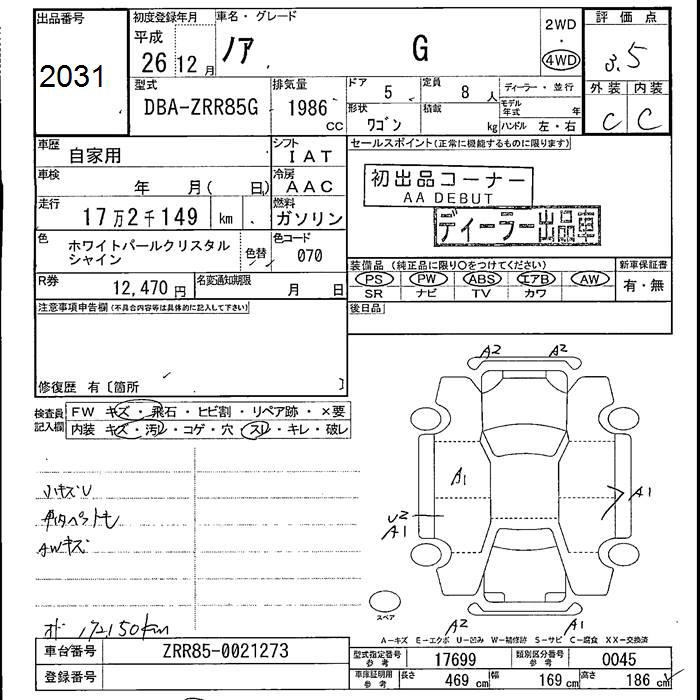 出品番号 初度登録年月 車名・グレード 2WD 評価点
2031 平成 26 12月 ノア G ・ 4WD 3.5
型式 排気量 ドア 5 定員 8人 ディーラー・並行 外装 内装
DBA-ZRR85G 1986 CC 形状 ワゴン 積載 kg モデル年式 年 C C
ハンドル 左・右
車歴 自家用 シフト IAT セールスポイント(正常に機能するものに限ります)
車検 年 月( 日) 冷房 AAC 初出品コーナー
AA DEBUT
走行 17万2千149 km 燃料 ガソリン ディーラー出品車
色 ホワイトパールクリスタル 色替 色コード 070
シャイン
装備品(純正品に限り○をつけてください) 新車保証書
R券 12,470円 名変通知期限 月 日 PS PW ABS エアB AW 有・無
SR ナビ TV カワ
注意事項申告欄(不具合内容等は具体的に記入して下さい) 後日品
修復歴 有〔箇所 〕
検査員記入欄 FW キズ・飛石・ヒビ割・リペア跡・×要
内装 キズ・汚レ・コゲ・穴・スレ・キレ・破レ
A2 A2
小キズU A1 A1
車内ペットモ U2
AWキズ A1
スペア
オド 172150km A2 A1
A−キズ E−エクボ U−凹み W−補修跡 S−サビ C−腐食 XX−交換済
車台番号 ZRR85-0021273 型式指定番号 参考 17699 類別区分番号 参考 0045
登録番号 車庫証明用 参考 長さ 469 cm 幅 169 cm 高さ 186 cm